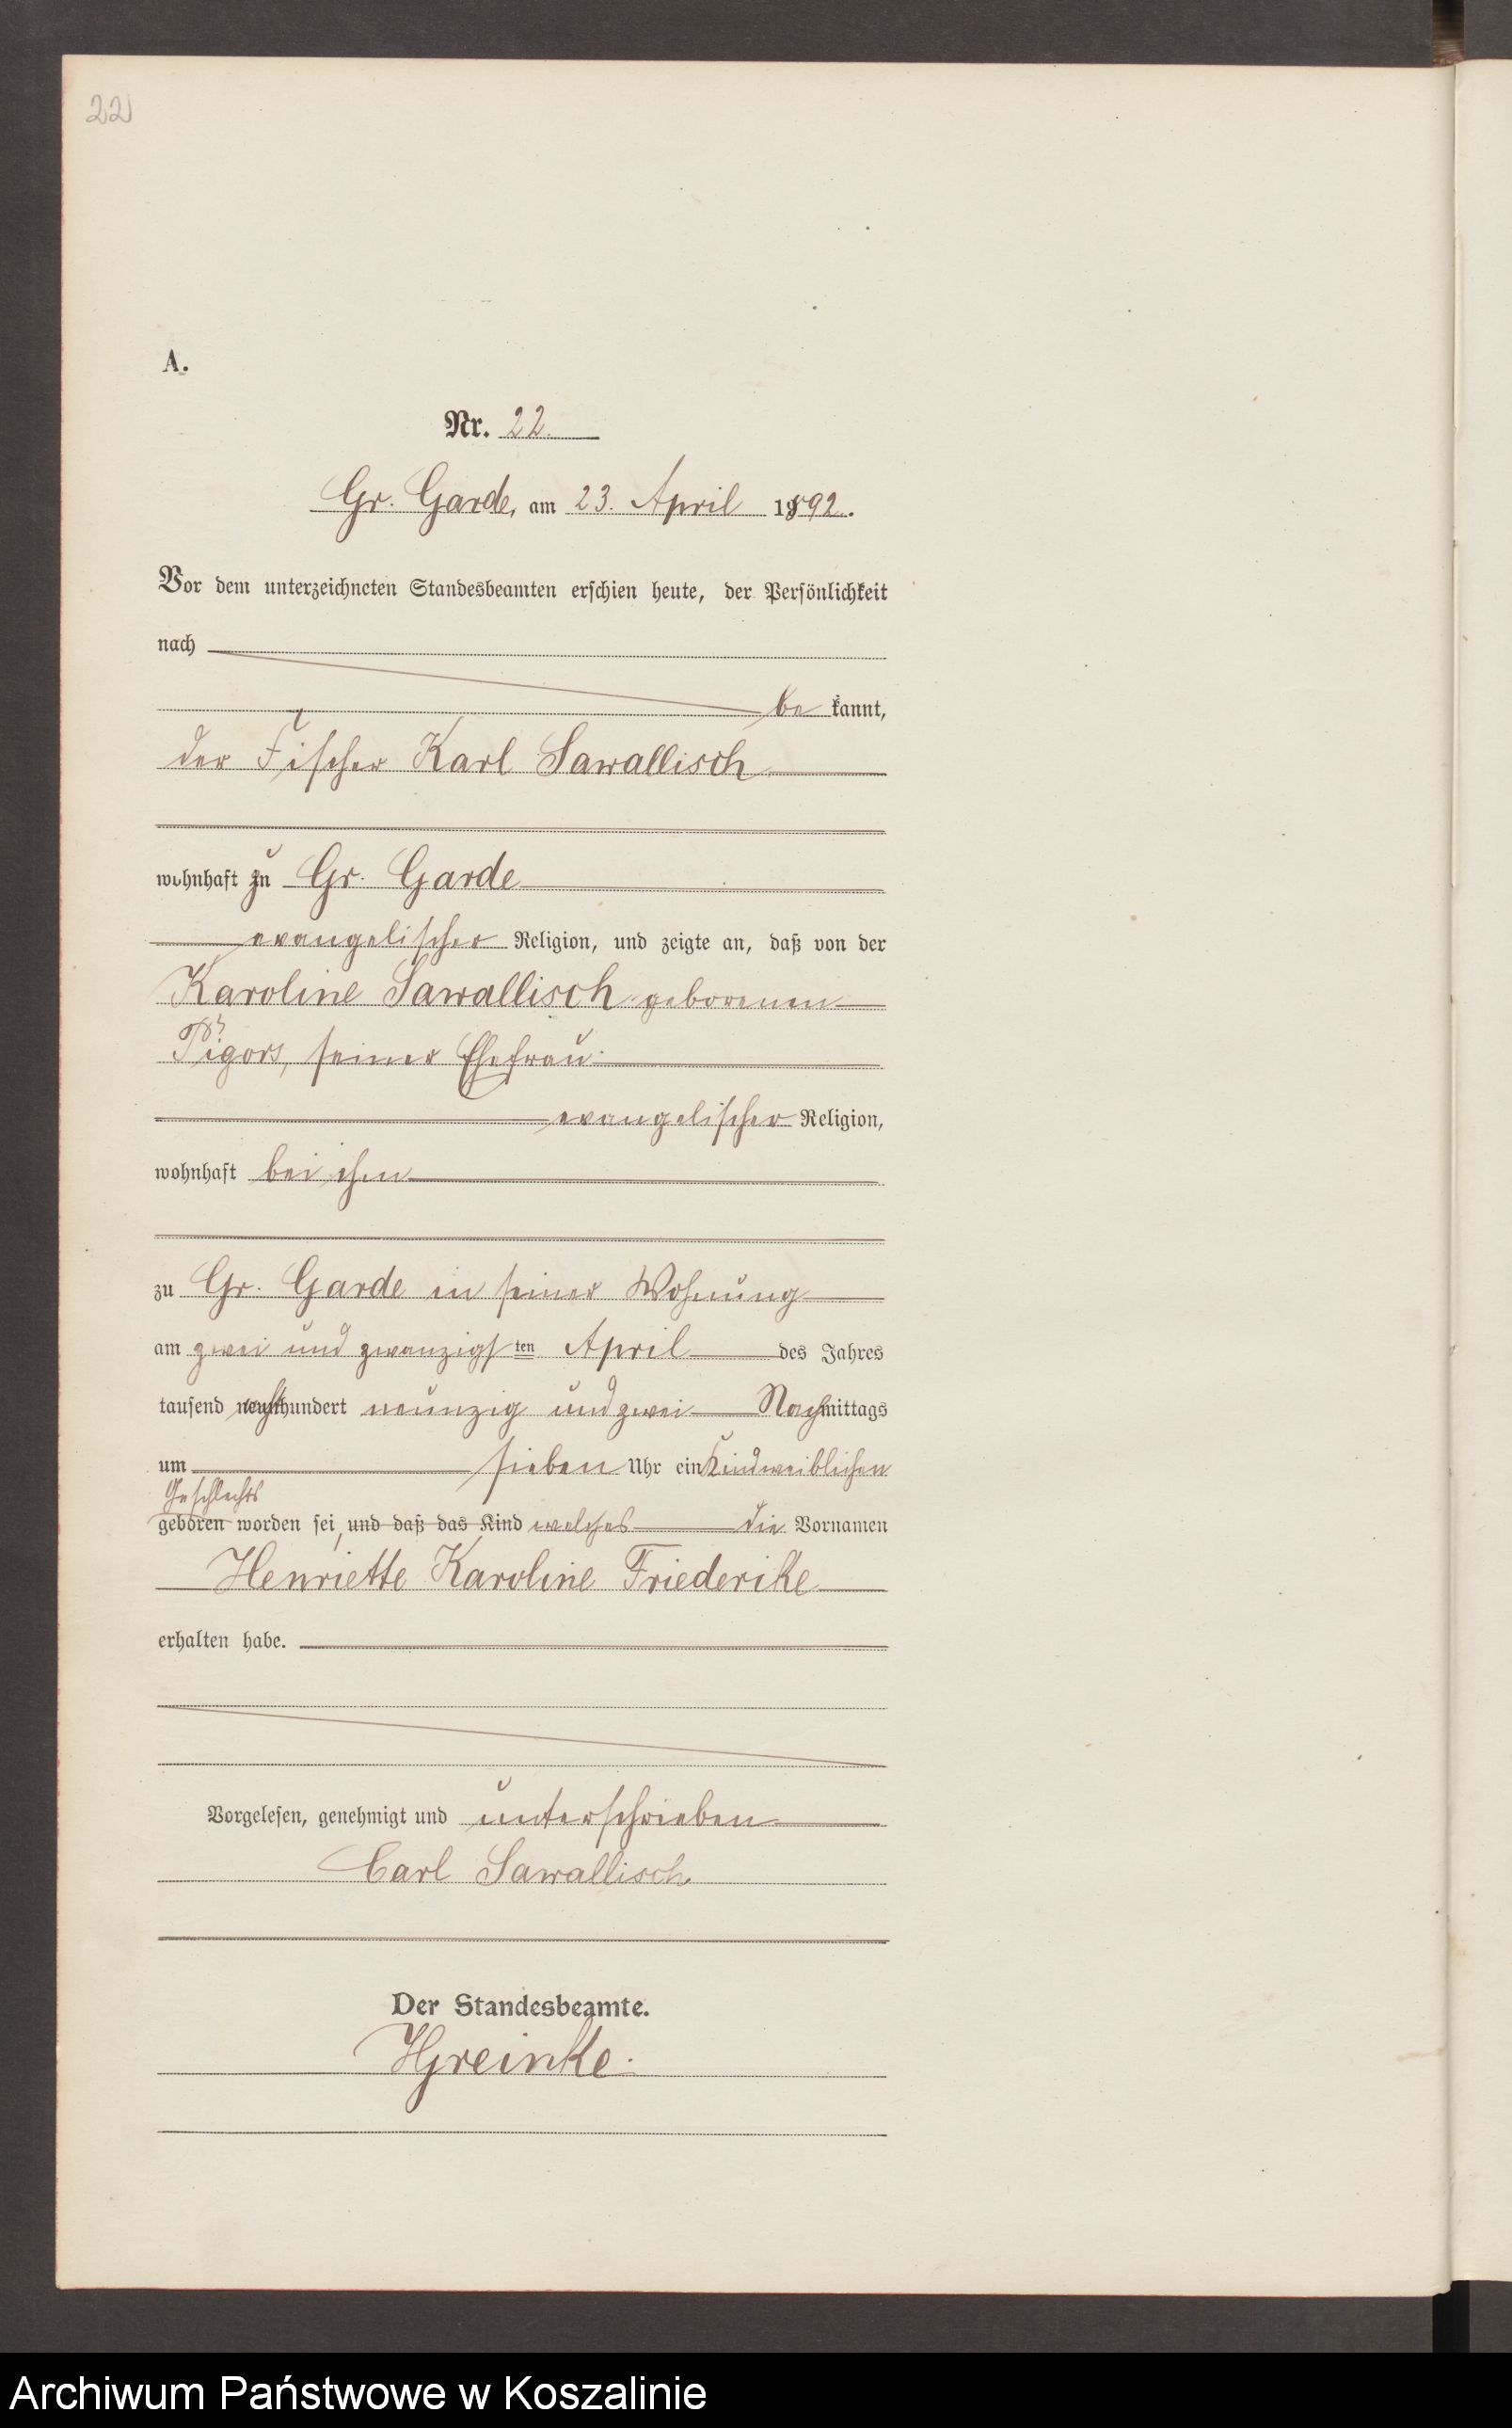 22
A.
Nr. 22.
Gr. Garde, am 23. April 1892.
Vor dem unterzeichneten Standesbeamten erschien heute, der Persönlichkeit
nach
be kannt,
der Fischer Karl Sawallisch
wohnhaft zu Gr. Garde
evangelischer Religion, und zeigte an, daß von der
Karoline Sawallisch geborenen
Pigors, seiner Ehefrau
evangelischer Religion,
wohnhaft bei ihm
zu Gr. Garde in seiner Wohnung
am zwei und zwanzigsten April des Jahres
tausend achthundert neunzig und zwei Nachmittags
um sieben Uhr ein Kind weiblichen
Geschlechts
geboren worden sei, und daß das Kind welches die Vornamen
Henriette Karoline Friederike
erhalten habe.
Vorgelesen, genehmigt und unterschrieben
Carl Sawallisch
Der Standesbeamte.
HGreinke.
Archiwum Państwowe w Koszalinie